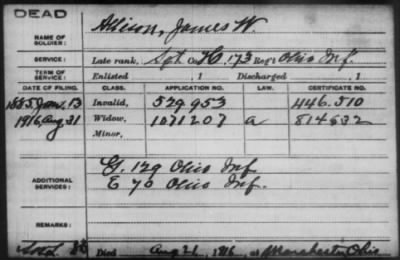 DEAD
NAME OF SOLDIER: Allison, James W.
SERVICE: Late rank, Sgt. Co. H, 173 Reg't Ohio Inf.
TERM OF SERVICE: Enlisted , 1 Discharged , 1
DATE OF FILING. CLASS. APPLICATION NO. LAW. CERTIFICATE NO.
1885, Jan. 13 Invalid, 529 953 446.510
1916, Aug 31 Widow, 1071207 a 814632
Minor,
ADDITIONAL SERVICES: G. 129 Ohio Inf
E 70 Ohio Inf.
REMARKS:
Died Aug 21, 1916, at Manchester, Ohio